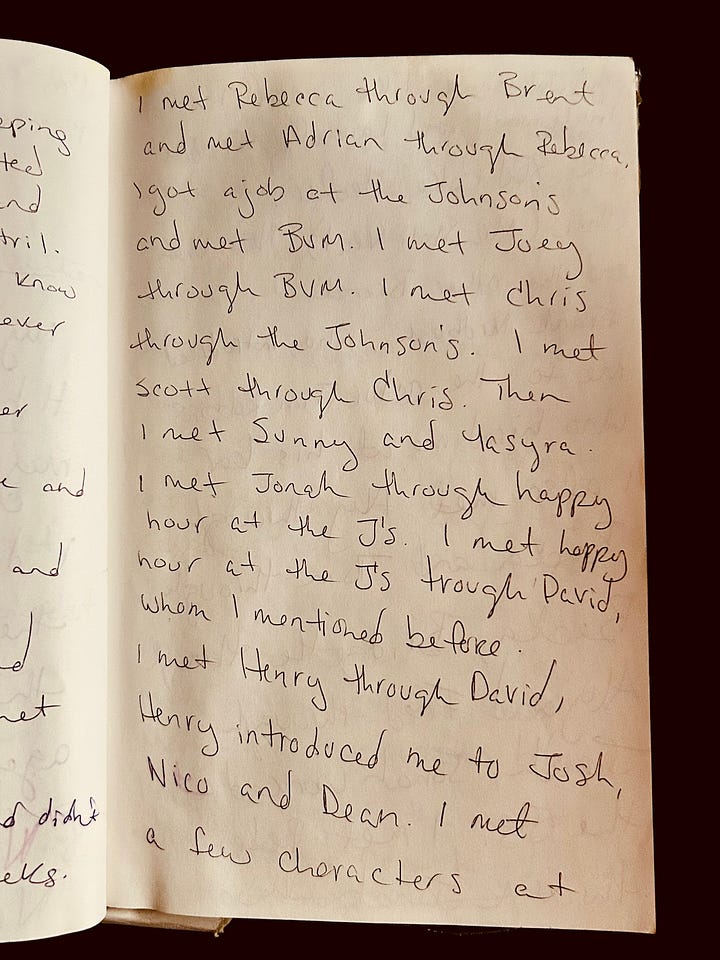 eping
ted
nd
tril.
know
ever
er
e and
and
d
net
d didn't
eks.
I met Rebecca through Brent
and met Adrian through Rebecca,
I got a job at the Johnson's
and met BVM. I met Joey
through BVM. I met Chris
through the Johnson's. I met
Scott through Chris. Then
I met Sunny and Yasyra.
I met Jonah through happy
hour at the J's. I met happy
hour at the J's trough David,
whom I mentioned before.
I met Henry through David,
Henry introduced me to Josh,
Nico and Dean. I met
a few characters at